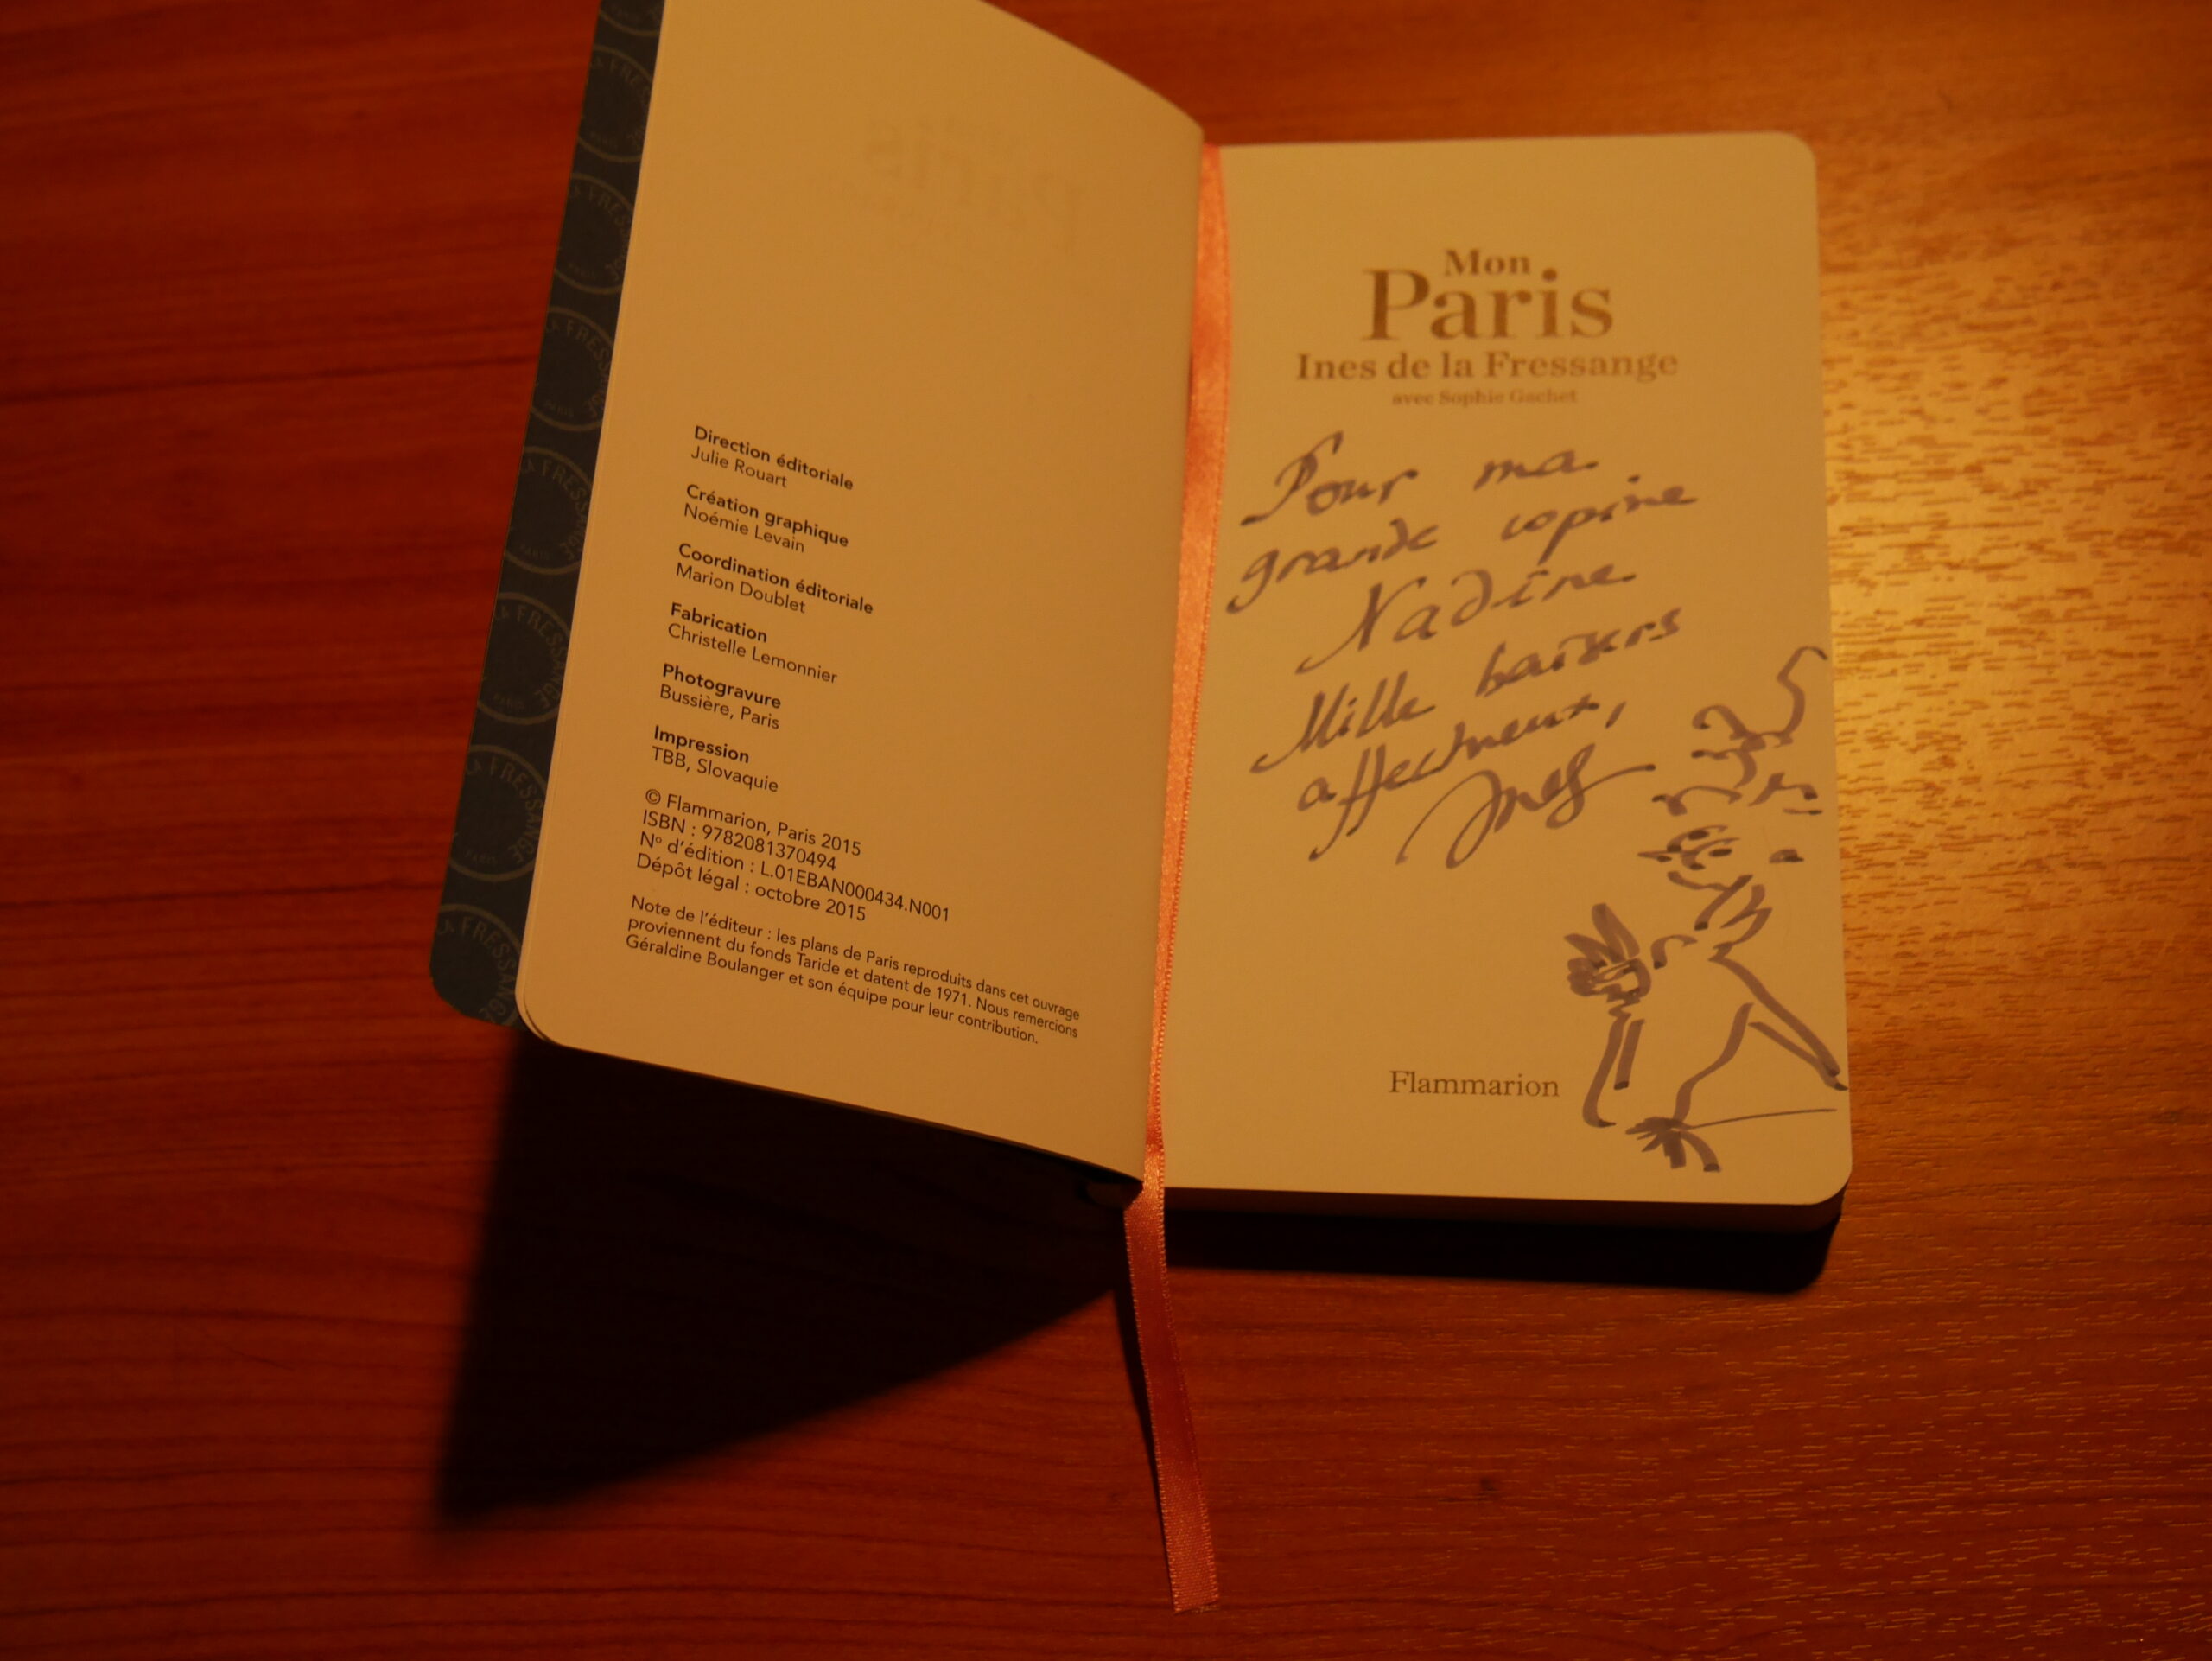 Direction éditoriale
Julie Rouart
Création graphique
Noémie Levain
Coordination éditoriale
Marion Doublet
Fabrication
Christelle Lemonnier
Photogravure
Bussière, Paris
Impression
TBB, Slovaquie
© Flammarion, Paris 2015
ISBN : 9782081370494
N° d'édition : L.01EBAN000434.N001
Dépôt légal : octobre 2015
Note de l'éditeur : les plans de Paris reproduits dans cet ouvrage
proviennent du fonds Taride et datent de 1971. Nous remercions
Géraldine Boulanger et son équipe pour leur contribution.
Mon
Paris
Ines de la Fressange
avec Sophie Gachet
Pour ma
grande copine
Nadine
Mille baisers
affectueux,
Ines
Flammarion